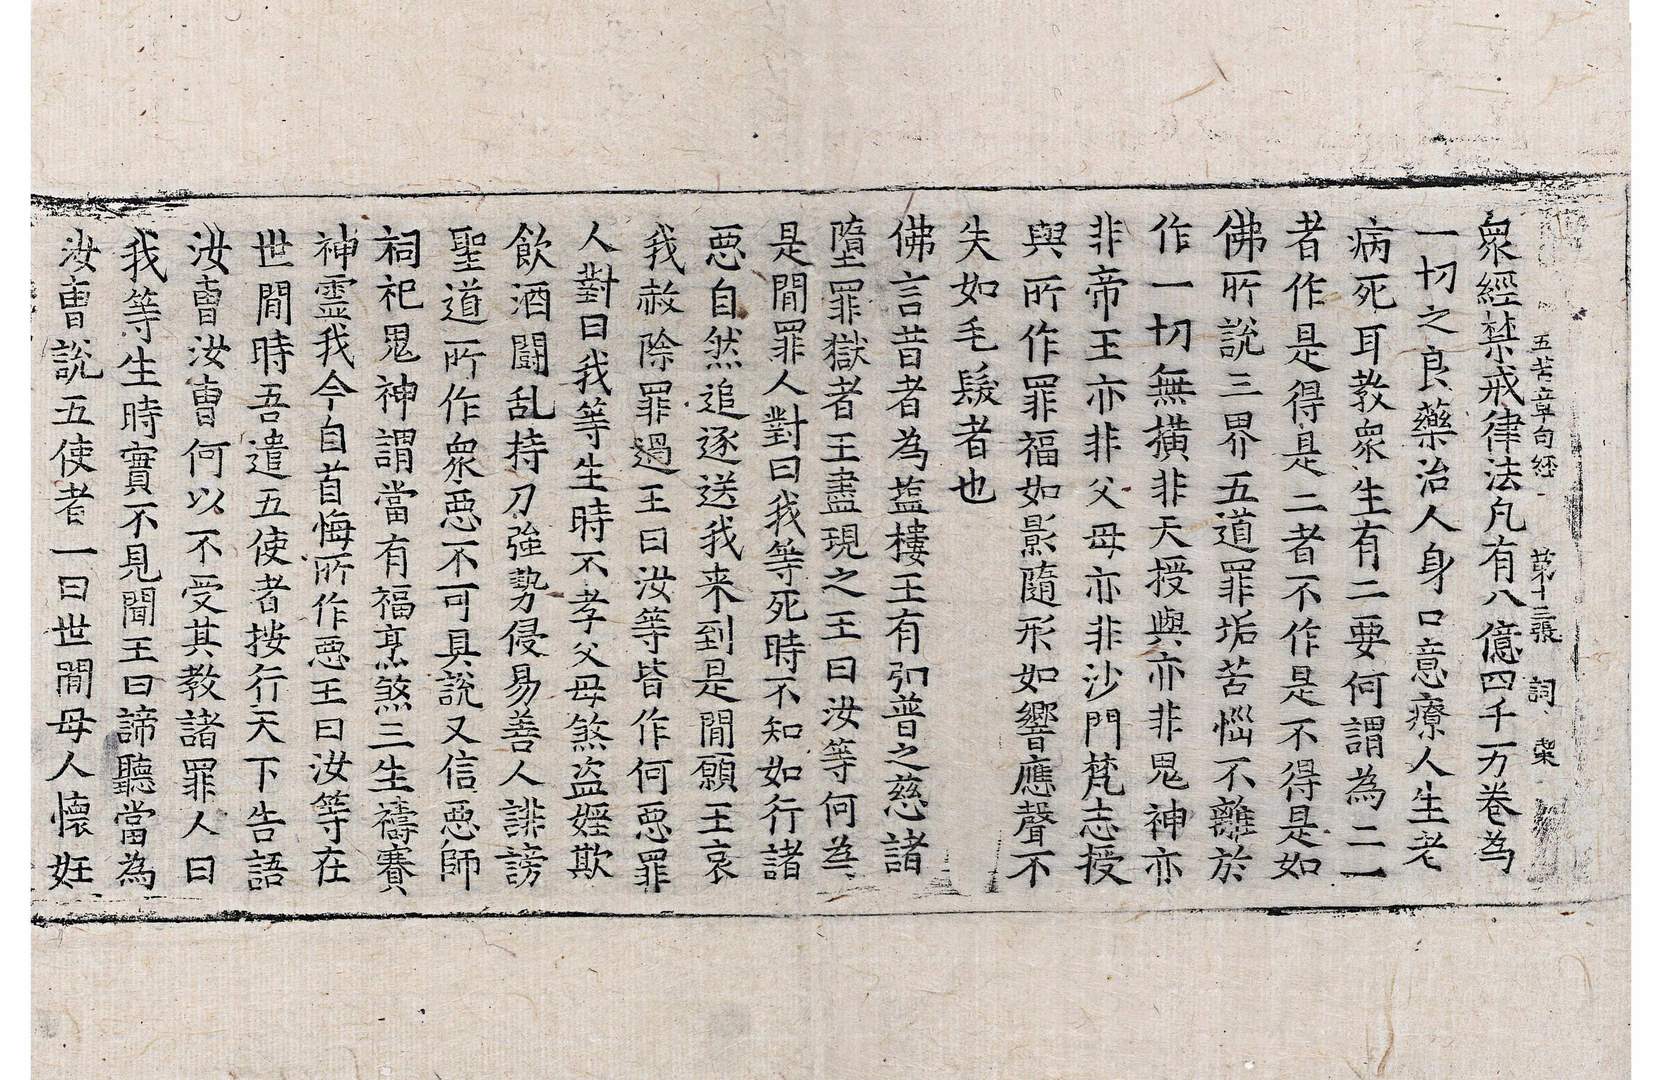 五苦章句經 第十三張 詞 㭍
衆經禁戒律法凡有八億四千万卷為
一切之良藥治人身口意療人生老
病死耳教衆生有二要何謂為二一
者作是得是二者不作是不得是如
佛所說三界五道罪垢苦惱不離於
作一切無橫非天授與亦非鬼神亦
非帝王亦非父母亦非沙門梵志授
與所作罪福如影隨形如響應聲不
失如毛髮者也
佛言昔者為䓹樓王有弘普之慈諸
墮罪獄者王盡現之王曰汝等何為
是間罪人對曰我等死時不知如行諸
惡自然追逐送我来到是間願王哀
我赦除罪過王曰汝等皆作何惡罪
人對曰我等生時不孝父母煞盗婬欺
飲酒鬪乱持刀強勢侵易善人誹謗
聖道所作衆惡不可具說又信惡師
祠祀鬼神謂當有福烹煞三生禱賽
神靈我今自首悔所作惡王曰汝等在
世間時吾遣五使者按行天下告語
汝曺汝曺何以不受其教諸罪人曰
我等生時實不見聞王曰諦聽當為
汝曺說五使者一曰世間母人懷妊